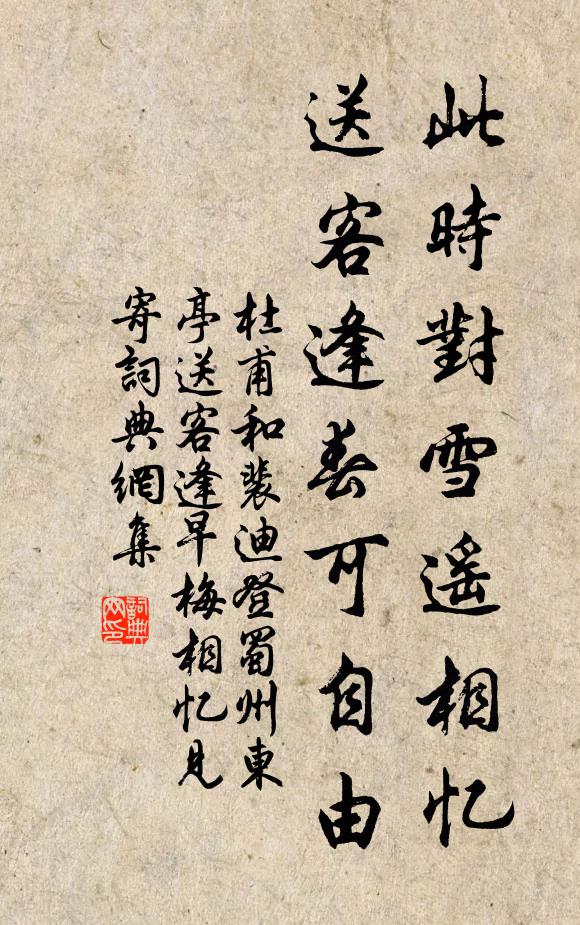 此時對雪遥相忆
送客逢春可自由
杜甫和裴迪登蜀州東
亭送客逢早梅相忆見
寄詞典網集
詞典
网印